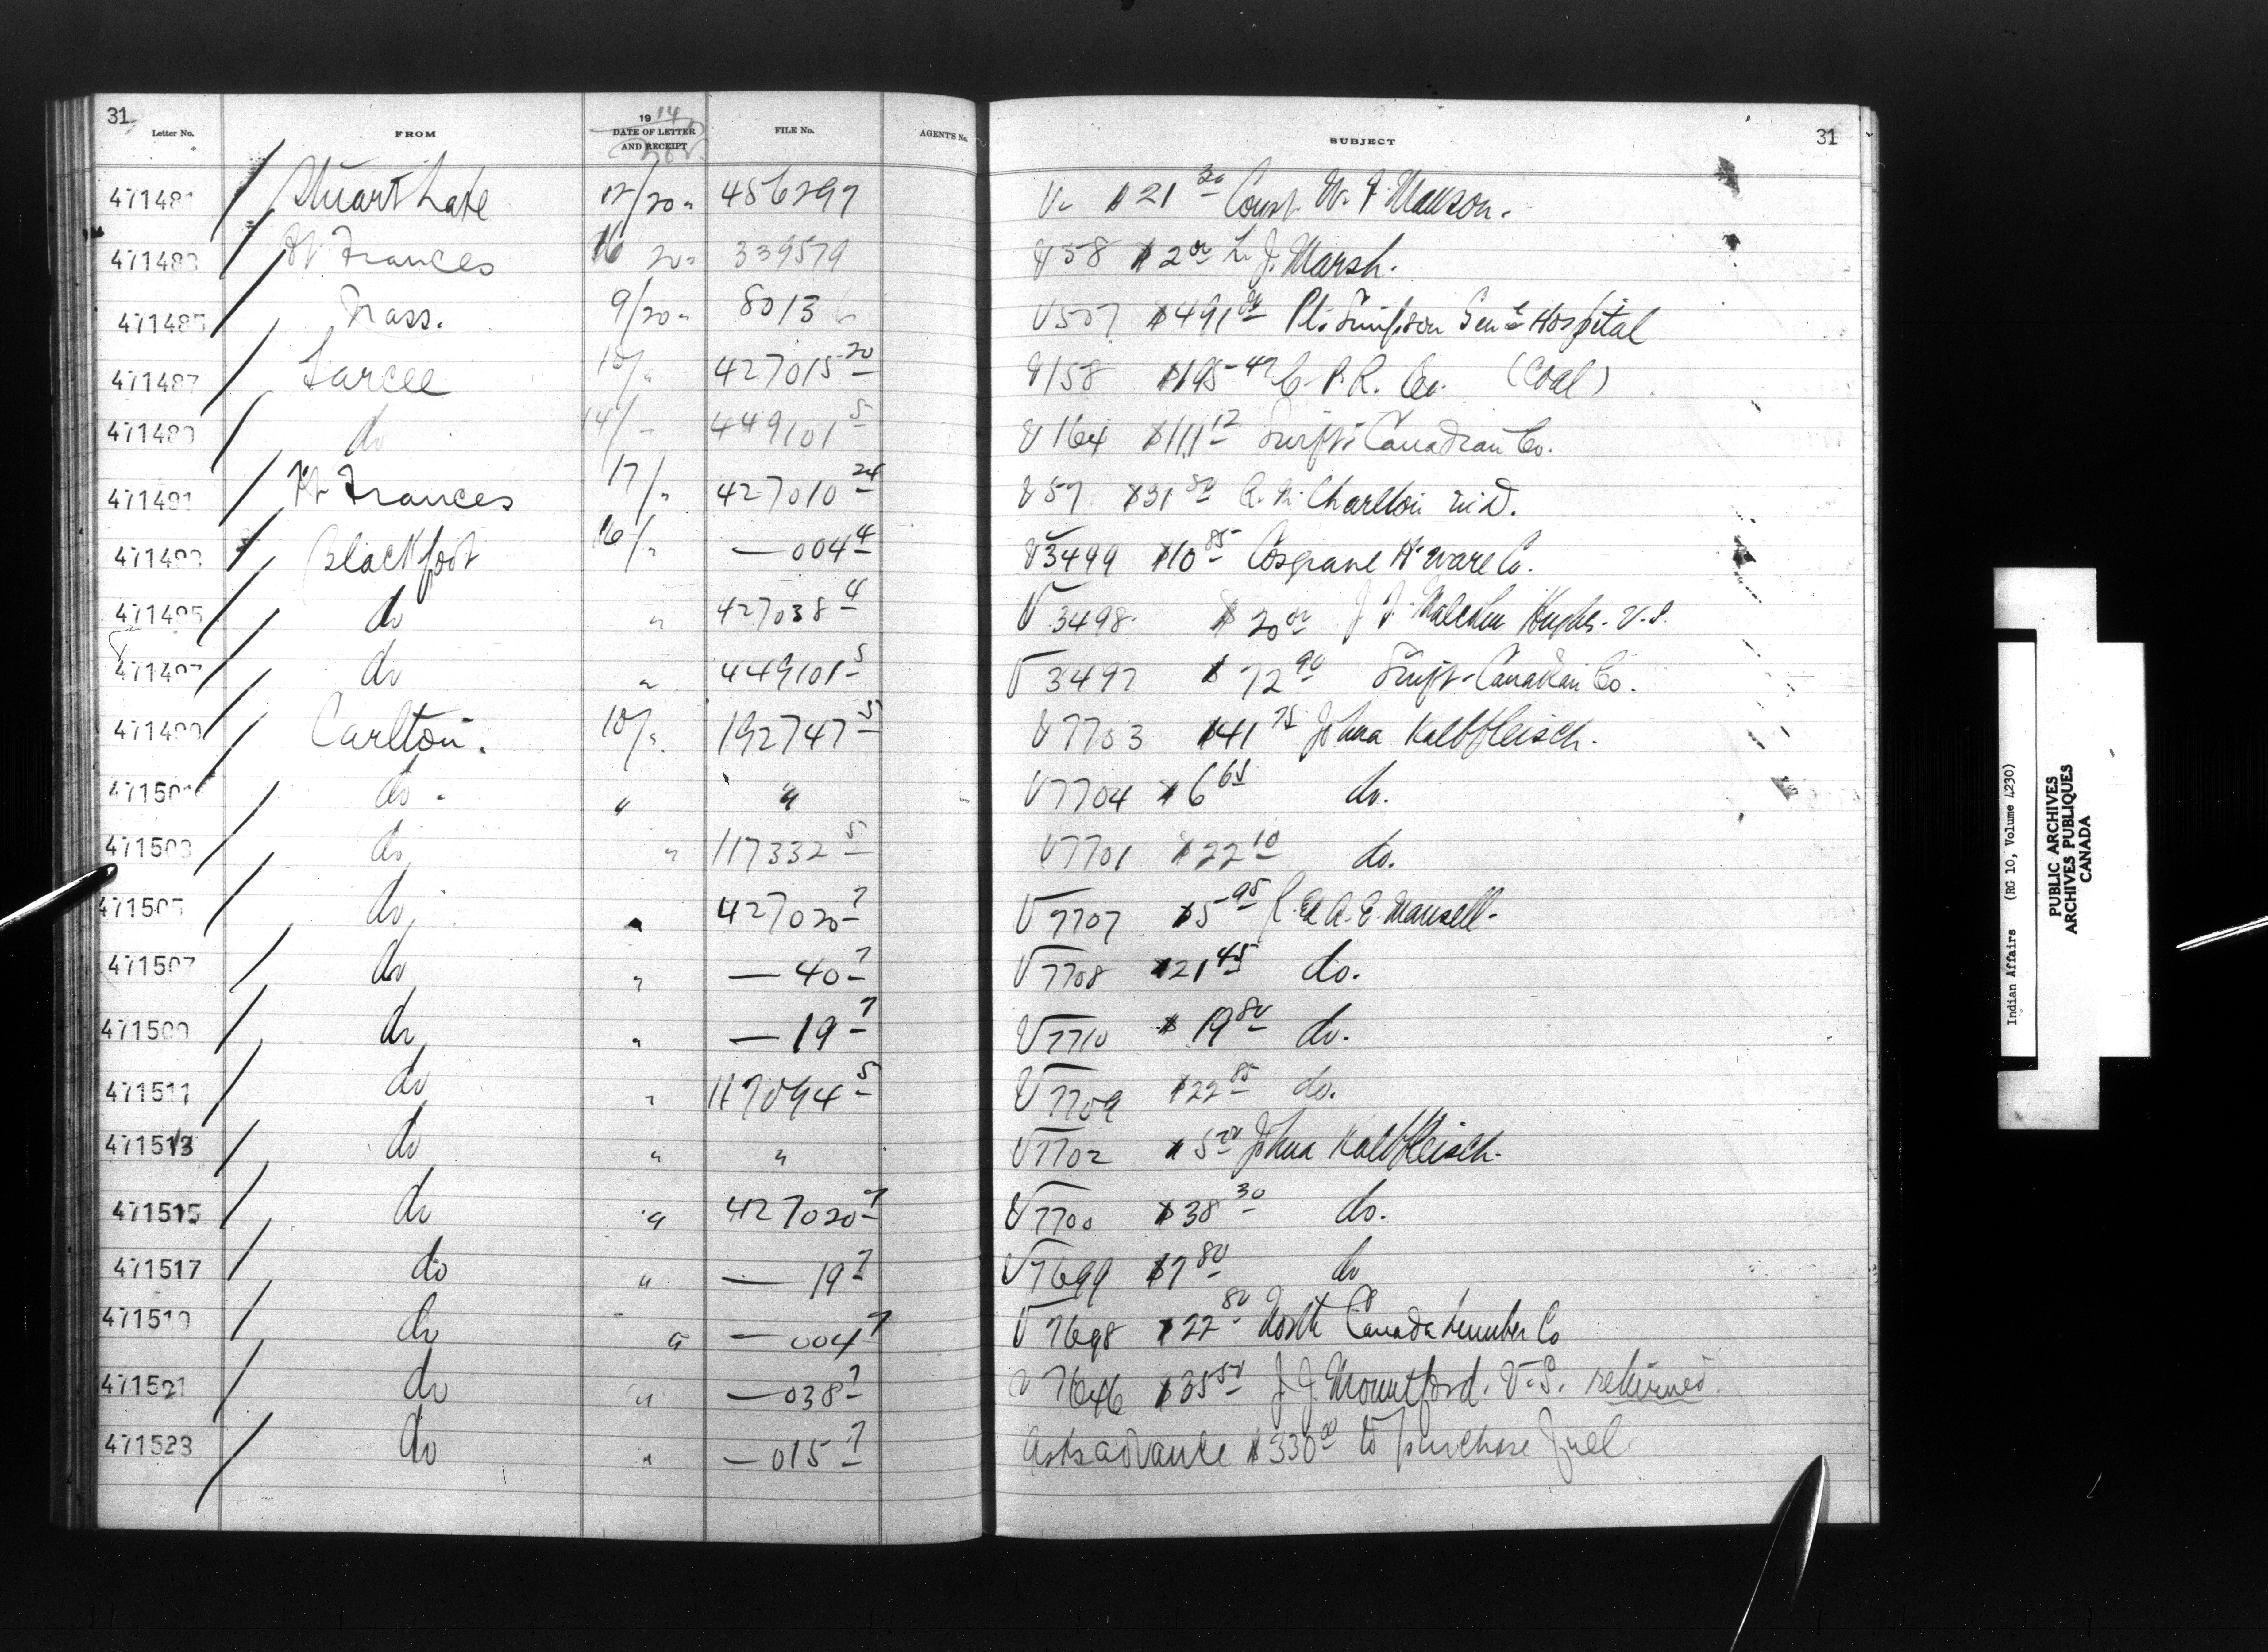 31
Letter No. FROM 1914 DATE OF LETTER AND RECEIPT FILE No. AGENT'S No. SUBJECT 31
471481 Stuart Lake 12/20 " 456297 V. $21 30 Const. W. F. Manson.
471483 Ft Frances 16 20 " 339579 V 58 $2 00 L. J. Marsh.
471485 Nass. 9/20 " 80136 V 507 $491 Pt. Simpson Genl Hospital
471487 Sarcee 10/ " 427015 20 V 158 $195 42 C. P. R. Co. (Coal)
471489 do 14/ " 449101 5 V 164 $111 12 Swift Canadian Co.
471491 Ft Frances 17/ " 427010 24 V 57 $31 50 Charlton M.D.
471493 Blackfoot 16/ " — 004 4 V 3499 $10 85 Cosgrave H'ware Co.
471495 do " 427038 4 V 3498 $20 00 J. F. Malcolm Hughes. V.S.
471497 do " 449101 5 V 3497 $72 90 Swift Canadian Co.
471499 Carlton. 10/ " 192747 5 V 7703 $41 75 Johna Kalbfleisch.
471501 do. " " V 7704 $6 65 do.
471503 do " 117332 5 V 7701 $22 10 do.
471505 do " 427020 7 V 7707 $5 95 A. E. Mansell.
471507 do " — 40 7 V 7708 $21 45 do.
471509 do " — 19 7 V 7710 $19 80 do.
471511 do " 117094 5 V 7709 $22 85 do.
471513 do " " V 7702 $5 Johna Kalbfleisch.
471515 do " 427020 7 V 7700 $38 30 do.
471517 do " — 19 7 V 7699 $7 80 do
471519 do " — 004 7 V 7698 $22 80 North Canada Lumber Co
471521 do " — 038 7 V 7646 $35 50 J. J. Mountford. V.S. returned.
471523 do " — 015 7 Asks advance $330 00 to purchase fuel
Indian Affairs (RG 10, Volume 4230)
PUBLIC ARCHIVES
ARCHIVES PUBLIQUES
CANADA